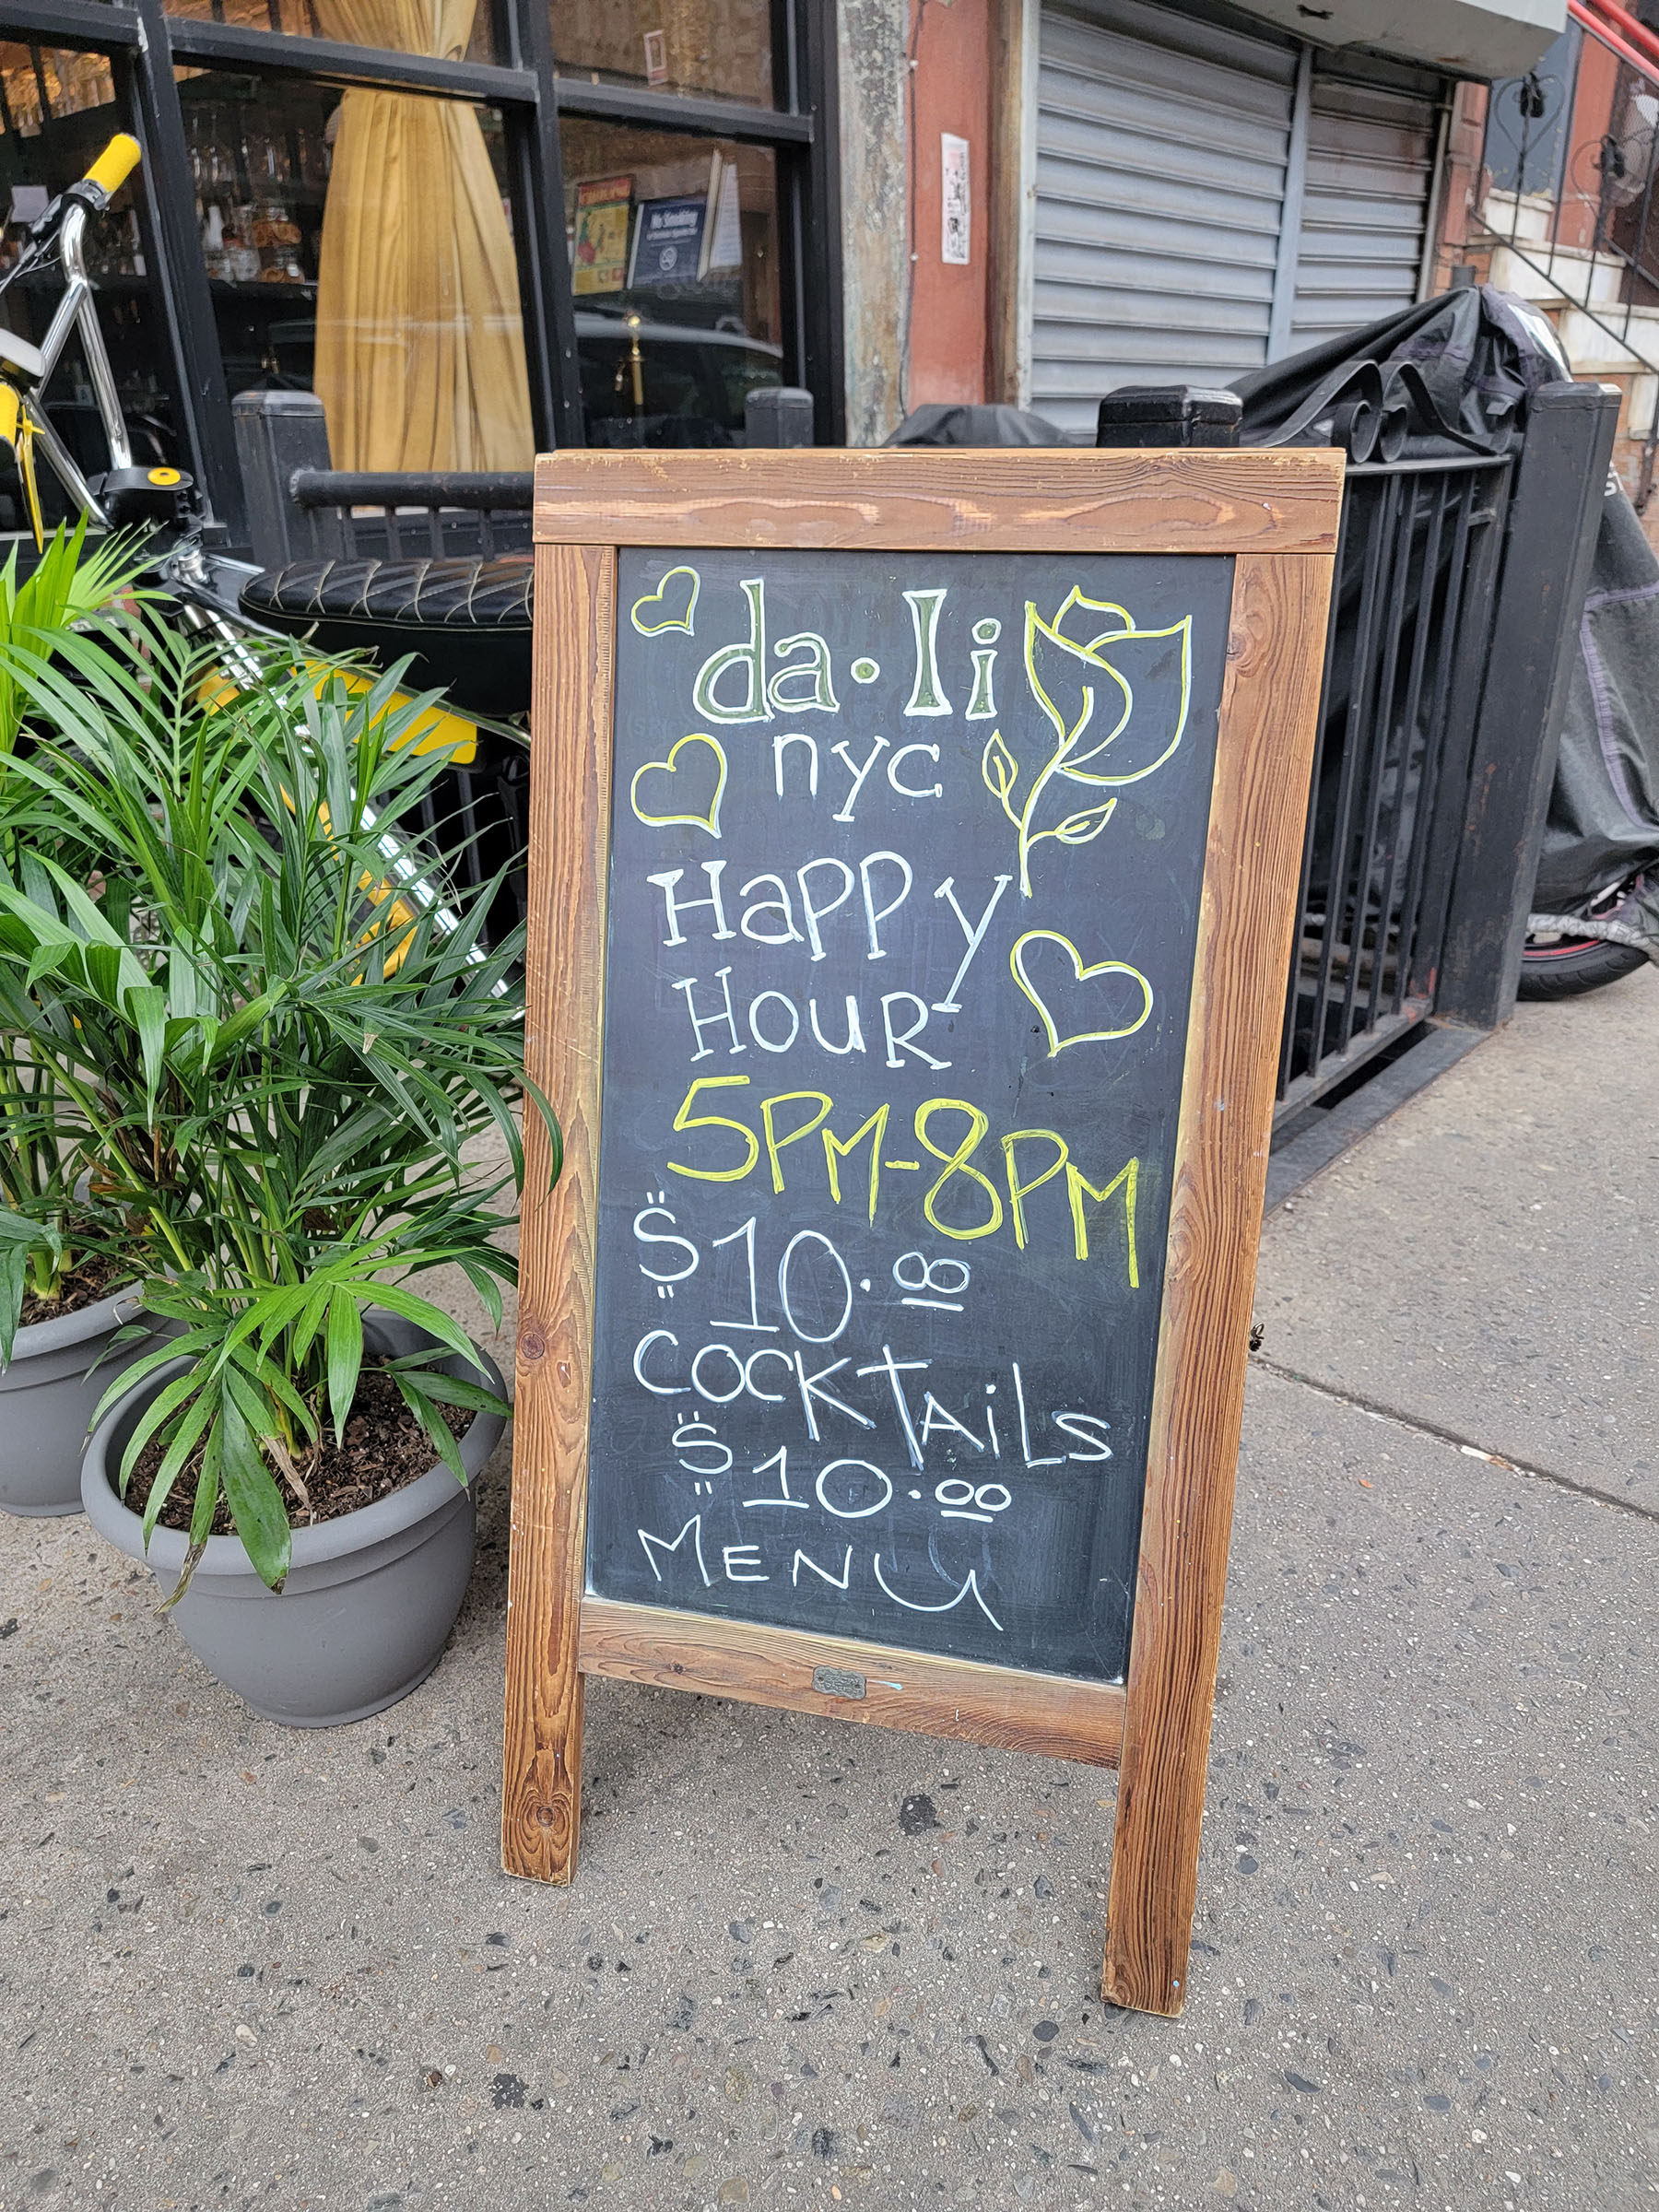 da·li
nyc
Happy
Hour
5PM-8PM
$10.00
COCKTAiLS
$10.00
MENU
No Smoking